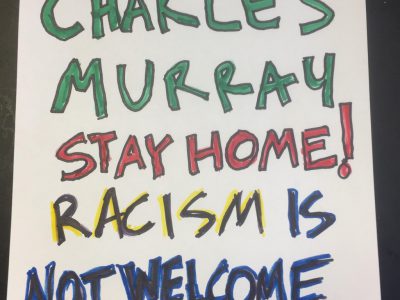 CHARLES
MURRAY
STAY HOME!
RACISM IS
NOT WELCOME